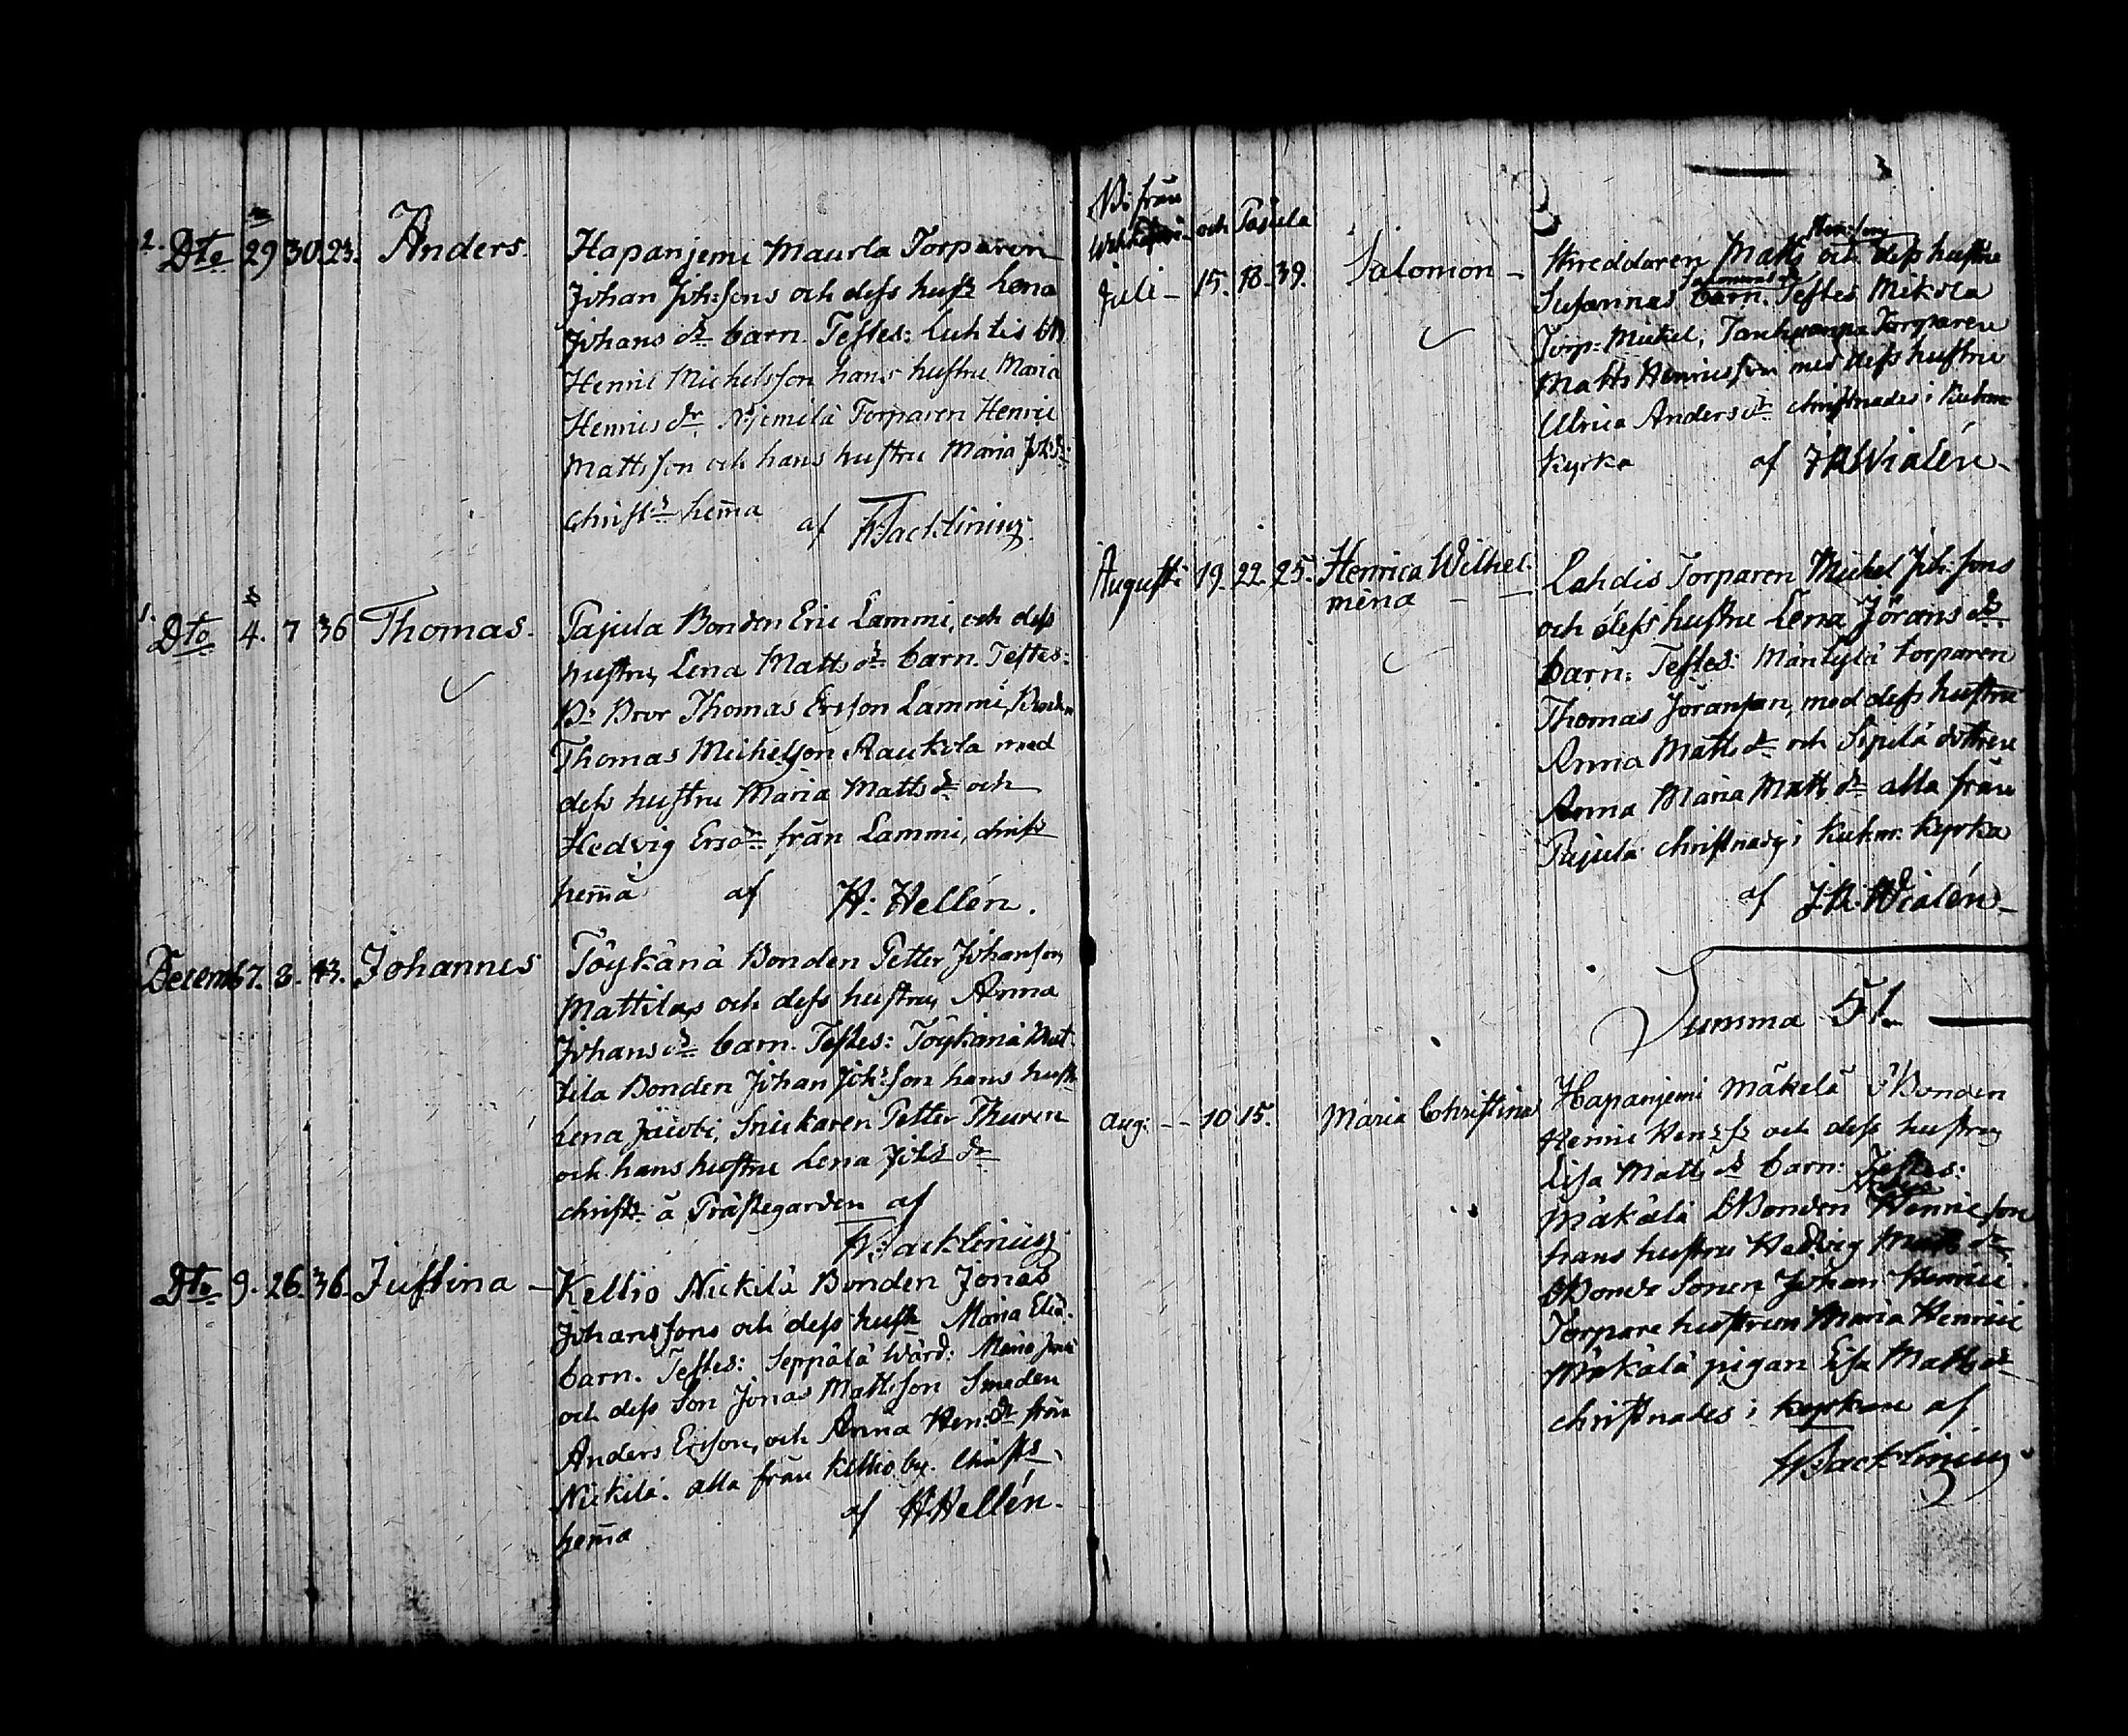 2. Dto 29 30. 23. Anders. Hapanjemi Maurla Torparen
Johan Joh:sons och dess hust: Lena
Johans dr barn. Testes: Luhtis
Henric Michelsson hans hustru Maria
Henrics dr Torparen Henric
Mattsson och hans hustru Maria Joh: dr
Christ: hema af Wacklinius.
1. Dto 4. 7 36 Thomas. Pajula Bonden Eric Lammi, och dess
hustru, Lena Matts dr barn. Testes:
Bror Thomas Ersson Lammi, Bonden
Thomas Michelson Raukola med
dess hustru Maria Matts dr och
Hedvig Ers dr från Lammi, christ
hema af H: Hellén.
Decemb 7. 8. 43. Johannes Töykänä Bonden Petter Johanson
Mattilas och dess hustru, Anna
Johans dr barn. Testes: Töykänä Mat
tila Bonden Johan Joh:son hans hust
Lena Jacobi, Snickaren Petter Thuren
och hans hustru Lena Joh: dr
christ: å Prästegården af
Wacklinius
Dto 9. 26. 36. Justina - Kellio Nickilä Bonden Jonas
Johanssons och dess hust: Maria Eliæ
barn. Testes: Seppälä Wärd: Maria
och dess Son Jonas Mattsson Smeden
Anders Ersson, och Anna Hen: dr från
Nickilä. alla från Kellio by. Christ:
hema af H. Hellén.
från
och Pajula
Juli - 15. 18. 39. Salomon - Skreddaren Matts Hen:sons och dess hustru
Susannas barn. Testes Mikola
Torp: Mickel, Torparen
Matts Henricsson med dess hustru
Ulrica Anders dr christnades i
Kyrka af J. Wialén
Augusti 19. 22. 25. Henrica Wilhel- Lahdis Torparen Michel Joh:sons
mina - och dess hustru Lena Jörans dr
barn: Testes: Mäntylä torparen
Thomas Joranson, med dess hustru
Anna Matts dr och Sipilä dottren
Anna Maria Matts dr alla från
Pajula christnades i Kuhm: Kyrka
af J. Wialén
Summa 51.
Aug: - - 10 15. Maria Christina Hapanjemi Mäkelä Bonden
Henric Hen: s: och dess hustru
Lisa Matts dr barn: Testes:
Mäkälä Bonden Henricson
hans hustru Hedvig Matts dr
Bonde Sonen Johan Henrici
Torpare hustrun Maria Henrici
Mäkälä pigan Lisa Matts dr
christnades i kyrkan af
Wacklinius